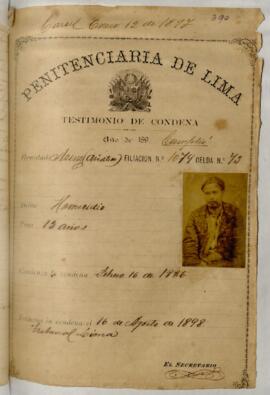 Carcel Enero 12 de 1897
390
PENITENCIARIA DE LIMA
TESTIMONIO DE CONDENA
Año de 189 Cumplió
FILIACION N.º 1074 CELDA N.º 73
Delito Homicidio
Pena 12 años
Comienza la condena Febrero 16 de 1886
condena el 16 de Agosto de 1898
Tribunal Lima
EL SECRETARIO